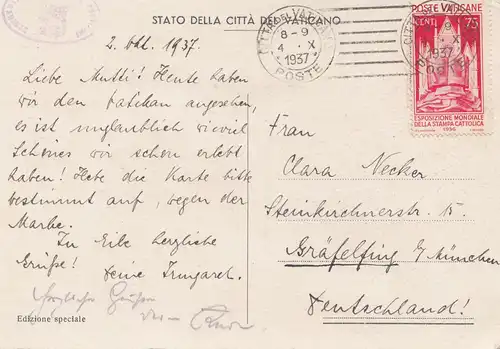 STATO DELLA CITTÀ DEL VATICANO
2. Okt. 1937.
Liebe Mutti! Heute haben
wir den Vatikan angesehen,
es ist unglaublich wieviel
Schönes wir schon erlebt
haben! Hebe die Karte bitte
bestimmt auf, wegen der
Marke.
In Eile herzliche
Grüße!
Deine Irmgard.
Herzliche Grüße
von
Edizione speciale
CITTÀ DEL VATICANO
8-9
4 X
1937
POSTE
POSTE VATICANE
CENT. 75
ESPOSIZIONE MONDIALE
DELLA STAMPA CATTOLICA
1936
1937
Frau
Clara Necker
Steinkirchnerstr. 15.
Gräfelfing b/München
Deutschland!